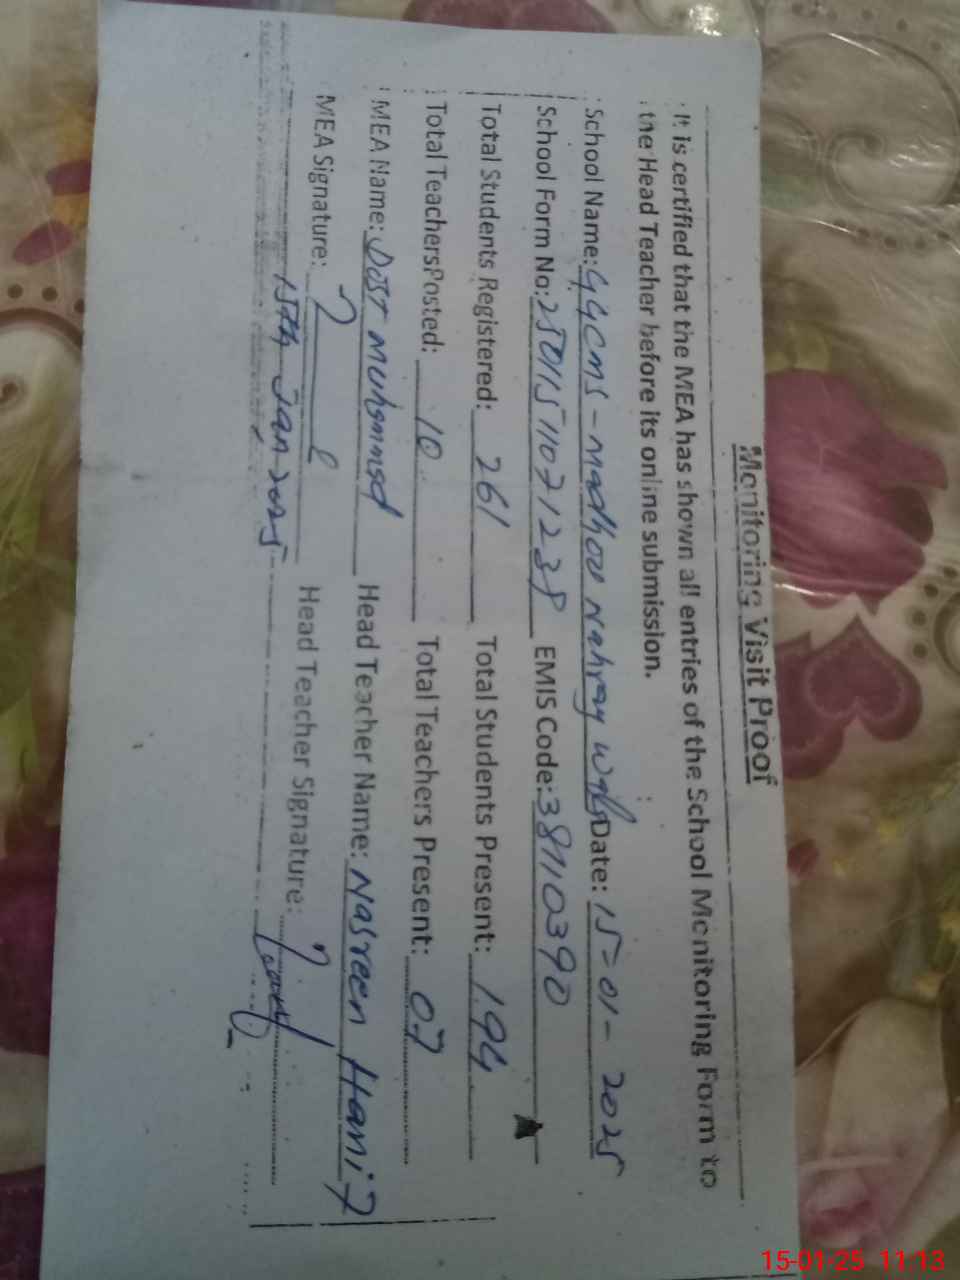 Monitoring Visit Proof
It is certified that the MEA has shown all entries of the School Monitoring Form to
the Head Teacher before its online submission.
School Name: GGCMS - Madhou Nahray Wah Date: 15-01-2025
School Form No: 2501151107 1238 EMIS Code: 38710390
Total Students Registered: 261 Total Students Present: 194
Total TeachersPosted: 10 Total Teachers Present: 07
MEA Name: DOST MUHAMMAD Head Teacher Name: Nasreen Hanif
MEA Signature: Head Teacher Signature:
15th Jan 2025
15-01-25 11:13